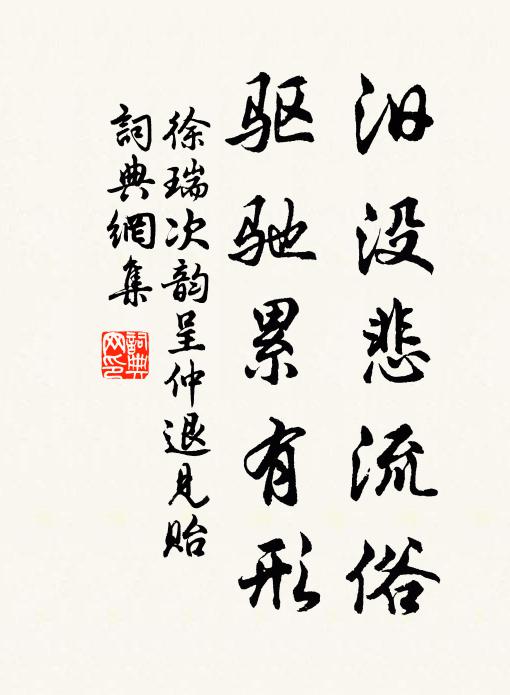 汩没悲流俗
驱驰累有形
徐瑞次韵呈仲退见贻
詞典網集
詞典網印